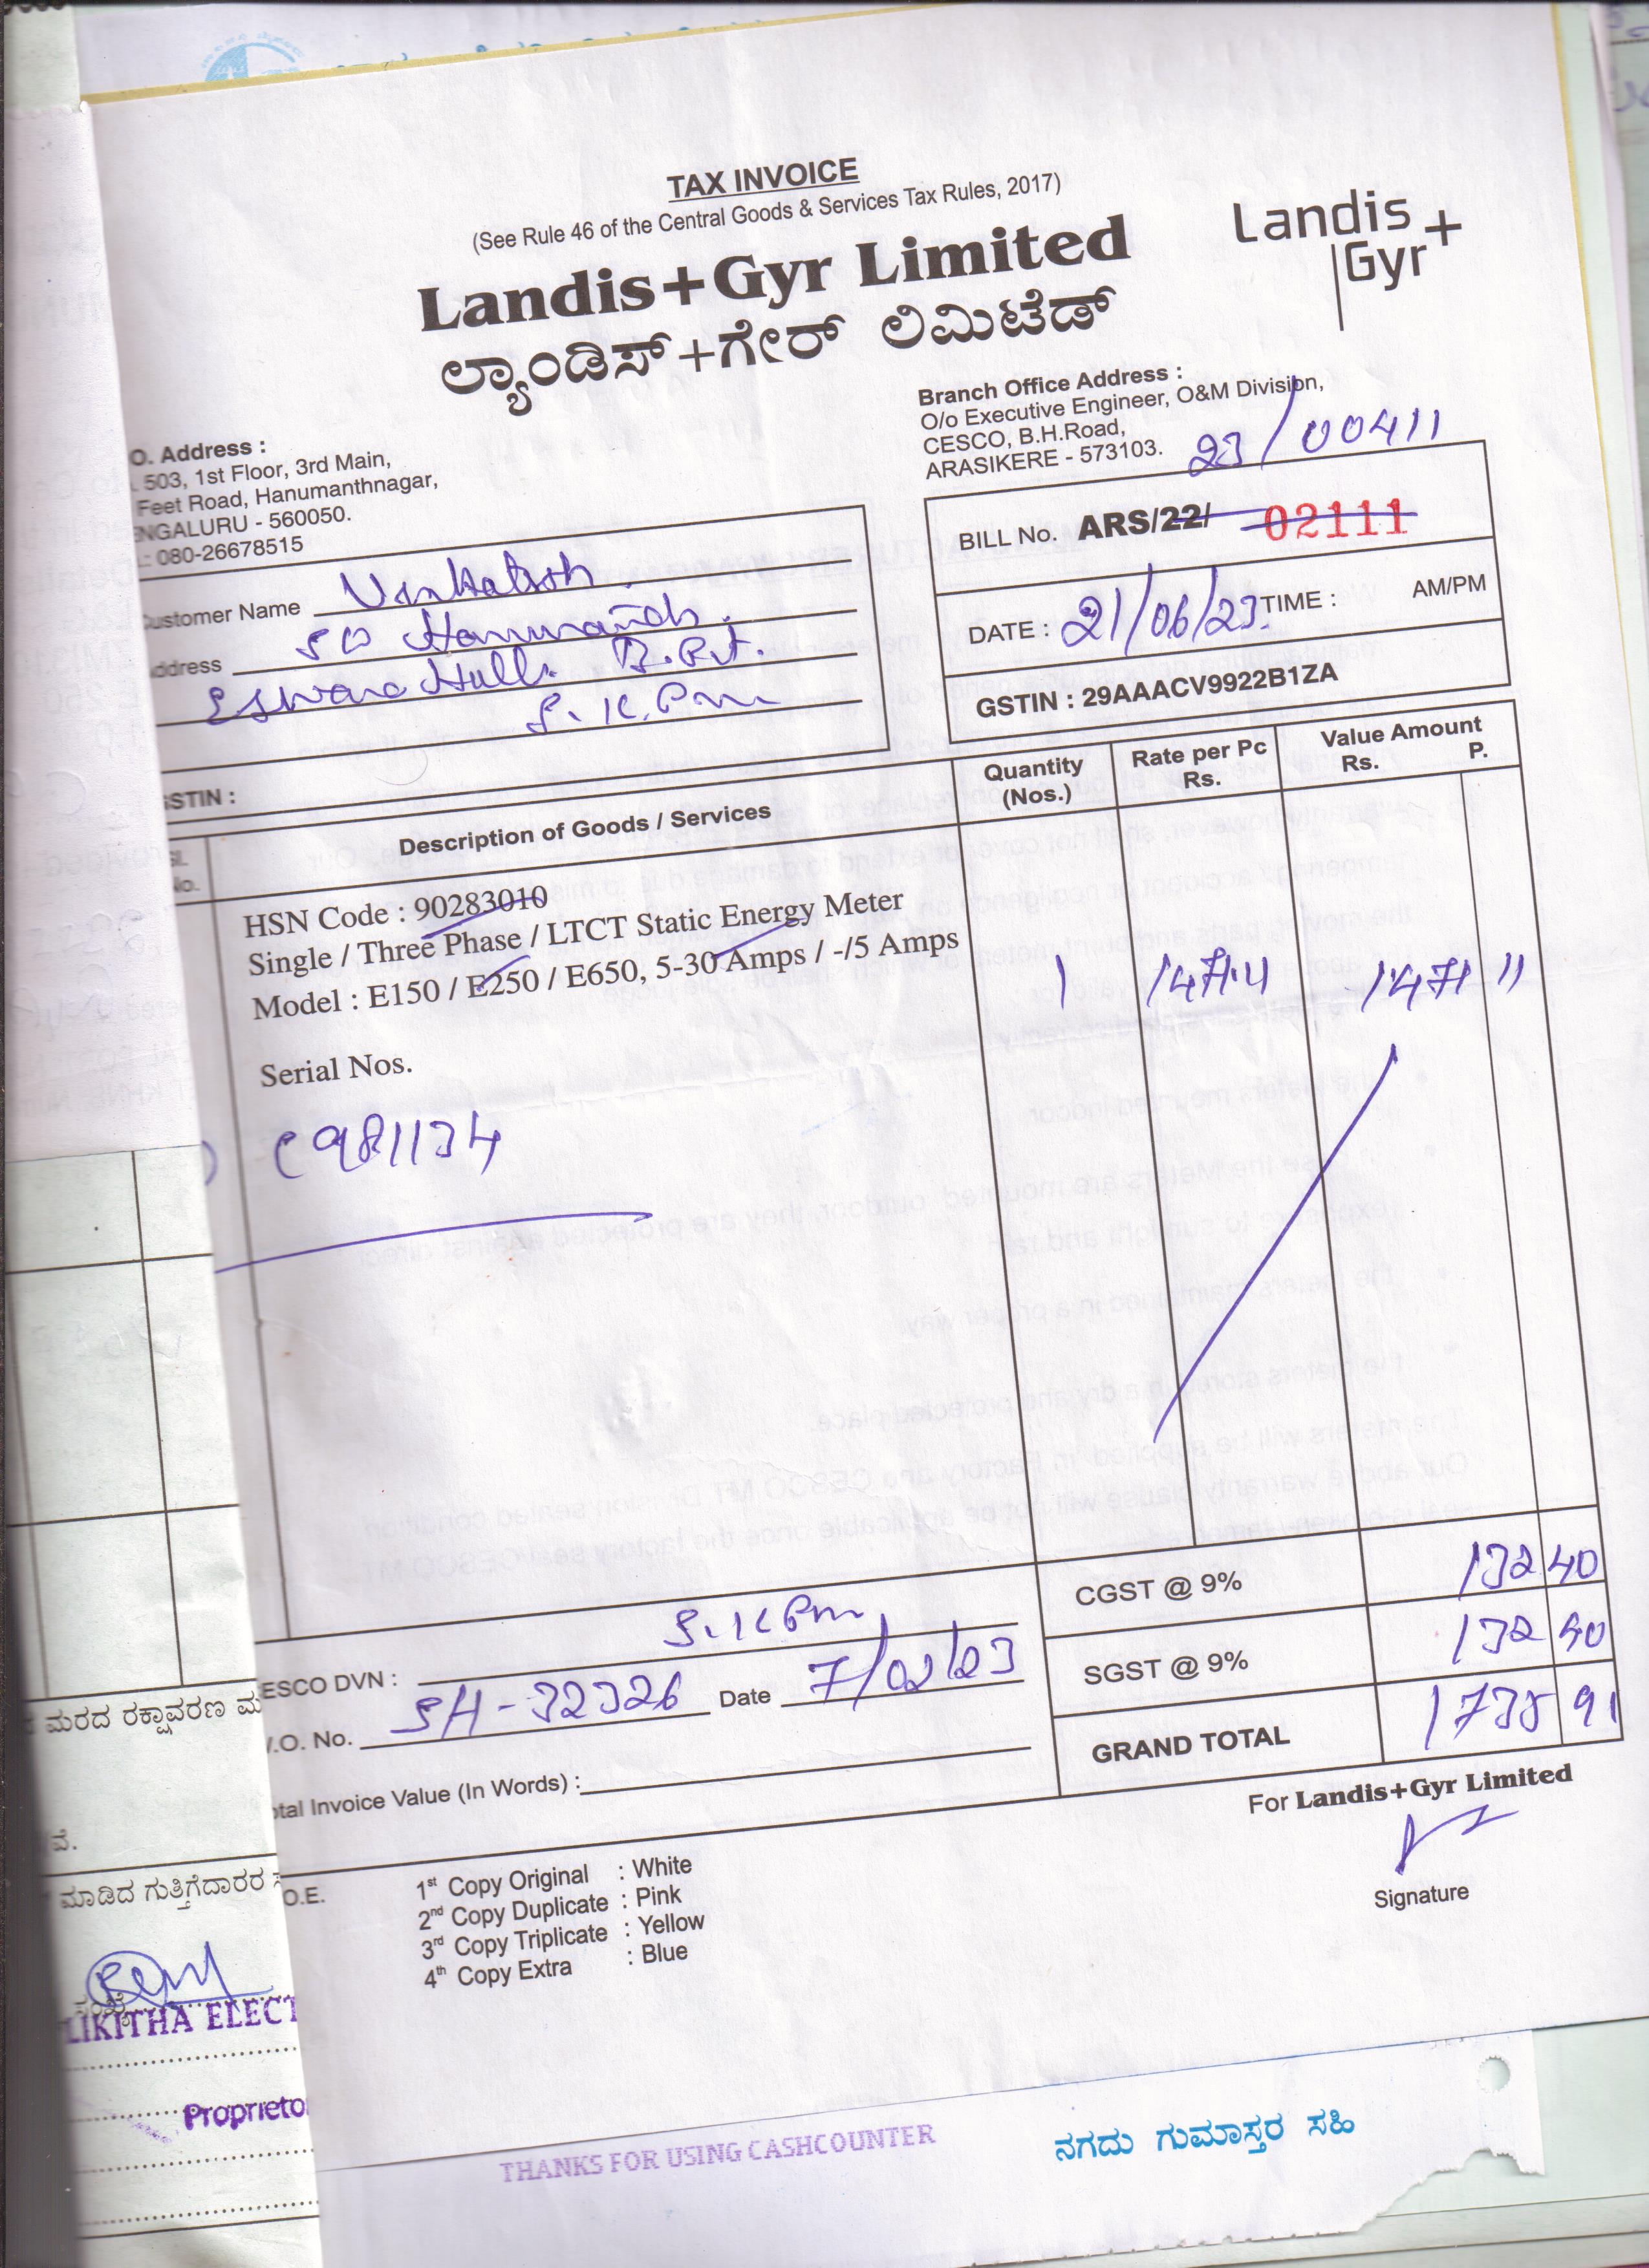 TAX INVOICE
(See Rule 46 of the Central Goods & Services Tax Rules, 2017)
Landis+Gyr Limited
ಲ್ಯಾಂಡಿಸ್+ಗೇರ್ ಲಿಮಿಟೆಡ್
Landis
Gyr+
O. Address :
503, 1st Floor, 3rd Main,
Feet Road, Hanumanthnagar,
ENGALURU - 560050.
: 080-26678515
Branch Office Address :
O/o Executive Engineer, O&M Division,
CESCO, B.H.Road,
ARASIKERE - 573103.
23/00411
BILL No. ARS/22/ 02111
DATE : 21/06/23. TIME : AM/PM
GSTIN : 29AAACV9922B1ZA
ustomer Name Venkatesh.
ddress
B.Pet.
S.K.Pm
GSTIN :
Sl. No. Description of Goods / Services Quantity (Nos.) Rate per Pc Rs. Value Amount Rs. P.
HSN Code : 90283010
Single / Three Phase / LTCT Static Energy Meter
Model : E150 / E250 / E650, 5-30 Amps / -/5 Amps
1 1471.11 1471 11
Serial Nos.
C981134
CGST @ 9% 132 40
SGST @ 9% 132 40
GRAND TOTAL 1735 91
ESCO DVN : S.K Pm
.O. No. SH-32326 Date 7/02/23
tal Invoice Value (In Words) :
For Landis+Gyr Limited
Signature
O.E.
1st Copy Original : White
2nd Copy Duplicate : Pink
3rd Copy Triplicate : Yellow
4th Copy Extra : Blue
ಮರದ ರಕ್ಷಾವರಣ ಮ
ವೆ.
ಮಾಡಿದ ಗುತ್ತಿಗೆದಾರರ
LIKITHA ELECT
Proprieto
THANKS FOR USING CASHCOUNTER
ನಗದು ಗುಮಾಸ್ತರ ಸಹಿ